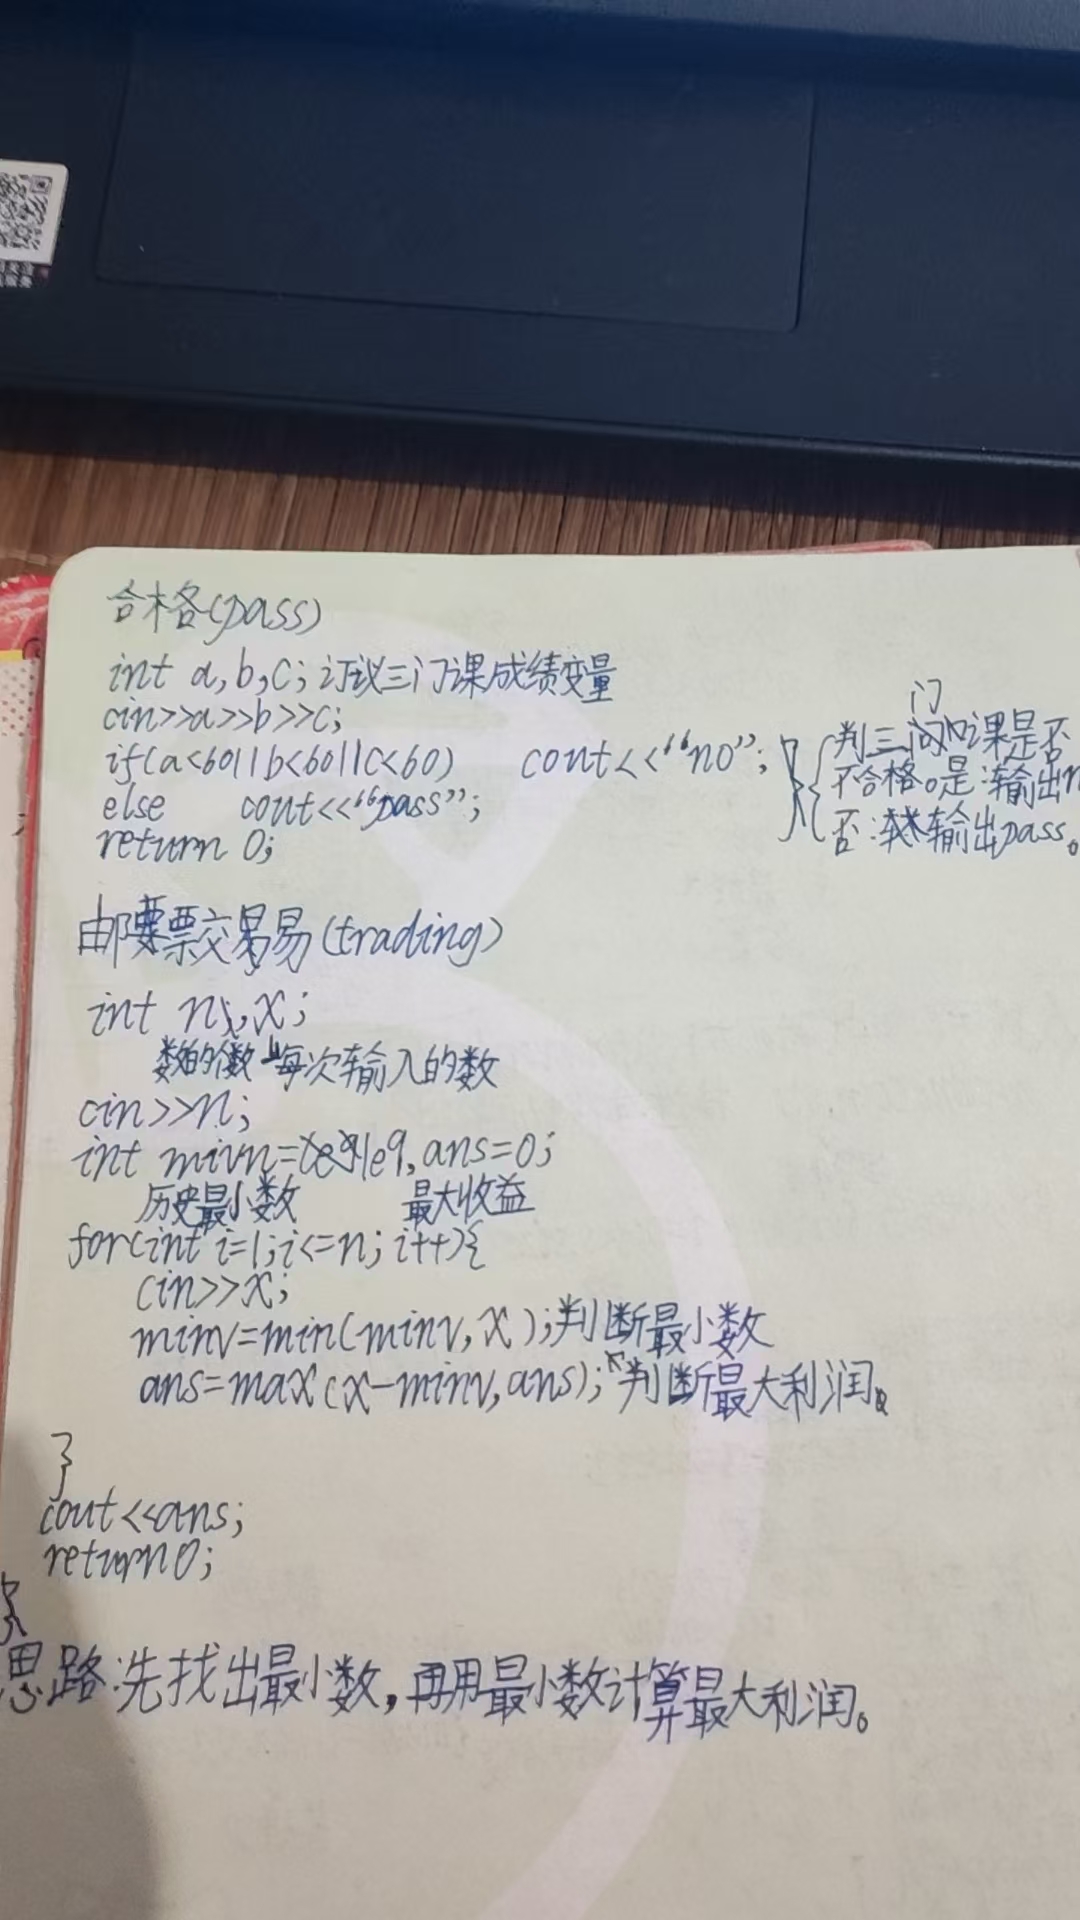 合格(pass)
int a,b,c; 订议三门课成绩变量
cin>>a>>b>>c;
if(a<60||b<60||c<60) cout<<“no”;
else cout<<“pass”;
return 0;
门
判三课是否
不合格。是:输出n
否:输出pass。
邮票交易(trading)
int n,x;
数的个数 每次输入的数
cin>>n;
int minv=1e9,ans=0;
历史最小数 最大收益
for(int i=1;i<=n;i++){
cin>>x;
minv=min(minv,x);判断最小数
ans=max(x-minv,ans);判断最大利润。
}
cout<<ans;
return 0;
}
思路:先找出最小数,再用最小数计算最大利润。